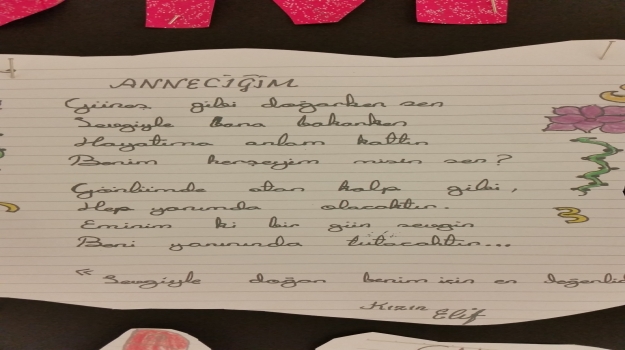 ANNECİĞİM
Güneş gibi doğarken sen
Sevgiyle bana bakarken
Hayatıma anlam kattın
Benim herşeyim misin sen?
Gönlümde atan kalp gibi,
Hep yanımda olacaktır.
Eminim ki bir gün sevgin
Beni yanında tutacaktır...
« Sevgiyle doğan benim için en
Kızın Elif